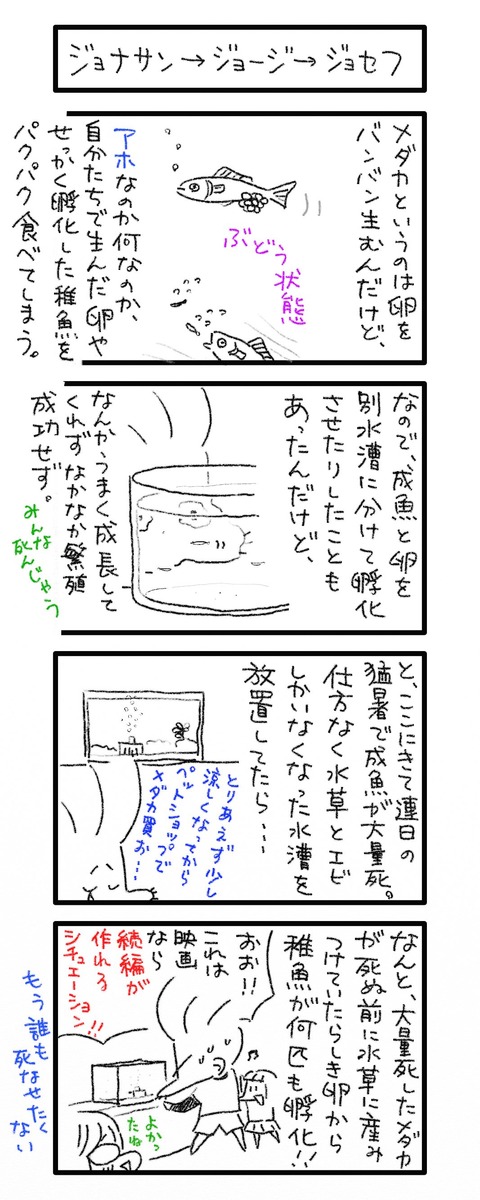 ジョナサン→ジョージ→ジョセフ
メダカというのは卵を
バンバン生むんだけど、
ぶどう
状態
アホなのか何なのか、
自分たちで生んだ卵や
せっかく孵化した稚魚を
パクパク食べてしまう。
なので、成魚と卵を
別水漕に分けて孵化
させたりしたことも
あったんだけど、
なんか、うまく成長して
くれずなかなか繁殖
成功せず。
みんな
死んじゃう
と、ここにきて連日の
猛暑で成魚が大量死。
仕方なく水草とエビ
しかいなくなった水漕を
放置してたら…
とりあえず少し
涼しくなってから
ペットショップで
メダカ買お…
なんと、大量死したメダカ
が死ぬ前に水草に産み
つけていたらしき卵から
稚魚が何匹も孵化!!
おお!!
これは
映画
なら
続編が
作れる
シチュエーション!!
よかっ
たね
もう誰も
死なせたく
ない